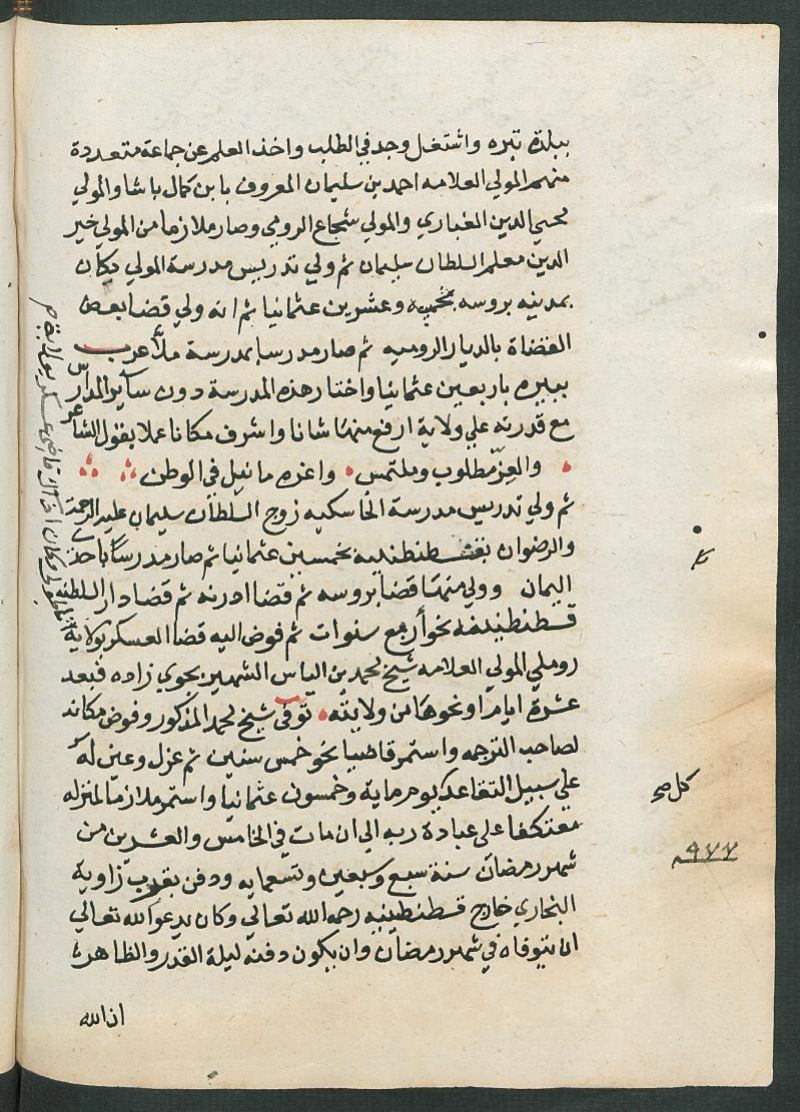 ببلدة تيره واشتغل وجد في الطلب واخذ العلم عن جماعة متعددة
منهم المولي العلامه احمد بن سليمان المعروف بابن كمال باشا والمولي
محيي الدين الفناري والمولي شجاع الرومي وصار ملازما من المولي خير
الدين معلم السلطان سليمان ثم ولي تدريس مدرسة المولي يكان
بمدينه بروسه بخمسه وعشرين عثمانيا ثم انه ولي قضا بعض
القضاة بالديار الروميه ثم صار مدرسا بمدرسة ملا عرب
ببيره باربعين عثمانيا واختار هذه المدرسة دون ساير المدارس
مع قدرته علي ولاية ارفع منها شانا واشرف مكانا عملا بقول الشاعر
والعز مطلوب وملتمس واعزه ما نيل في الوطن
ثم ولي تدريس مدرسة الخاسكيه زوج السلطان سليمان عليه الرحمة
والرضوان بقسطنطنيه بخمسين عثمانيا ثم صار مدرسا باحدي
الثمان وولي منها قضا بروسه ثم قضا ادرنه ثم قضا دار السلطنه
قسطنطينيه نحو اربع سنوات ثم فوض اليه قضا العسكر بولاية
روملي المولي العلامه شيخ محمد بن الياس الشهير بجوي زاده فبعد
عشرة ايام او نحوها من ولايته توفي شيخ محمد المذكور وفوض مكانه
لصاحب الترجمه واستمر قاضيا نحو خمس سنين ثم عزل وعين له
علي سبيل التقاعد كل يوم ماية وخمسون عثمانيا واستمر ملازما لمنزله
معتكفا علي عبادة ربه الي ان مات في الخامس والعشرين من
شهر رمضان سنة سبع وسبعين وتسعمايه ودفن بقرب زاوية
البخاري خارج قسطنطينيه رحمه الله تعالي وكان يدعو الله تعالي
ان يتوفاه في شهر رمضان وان يكون دفنه ليلة القدر والظاهر
ان الله
كل صح
٩٧٧